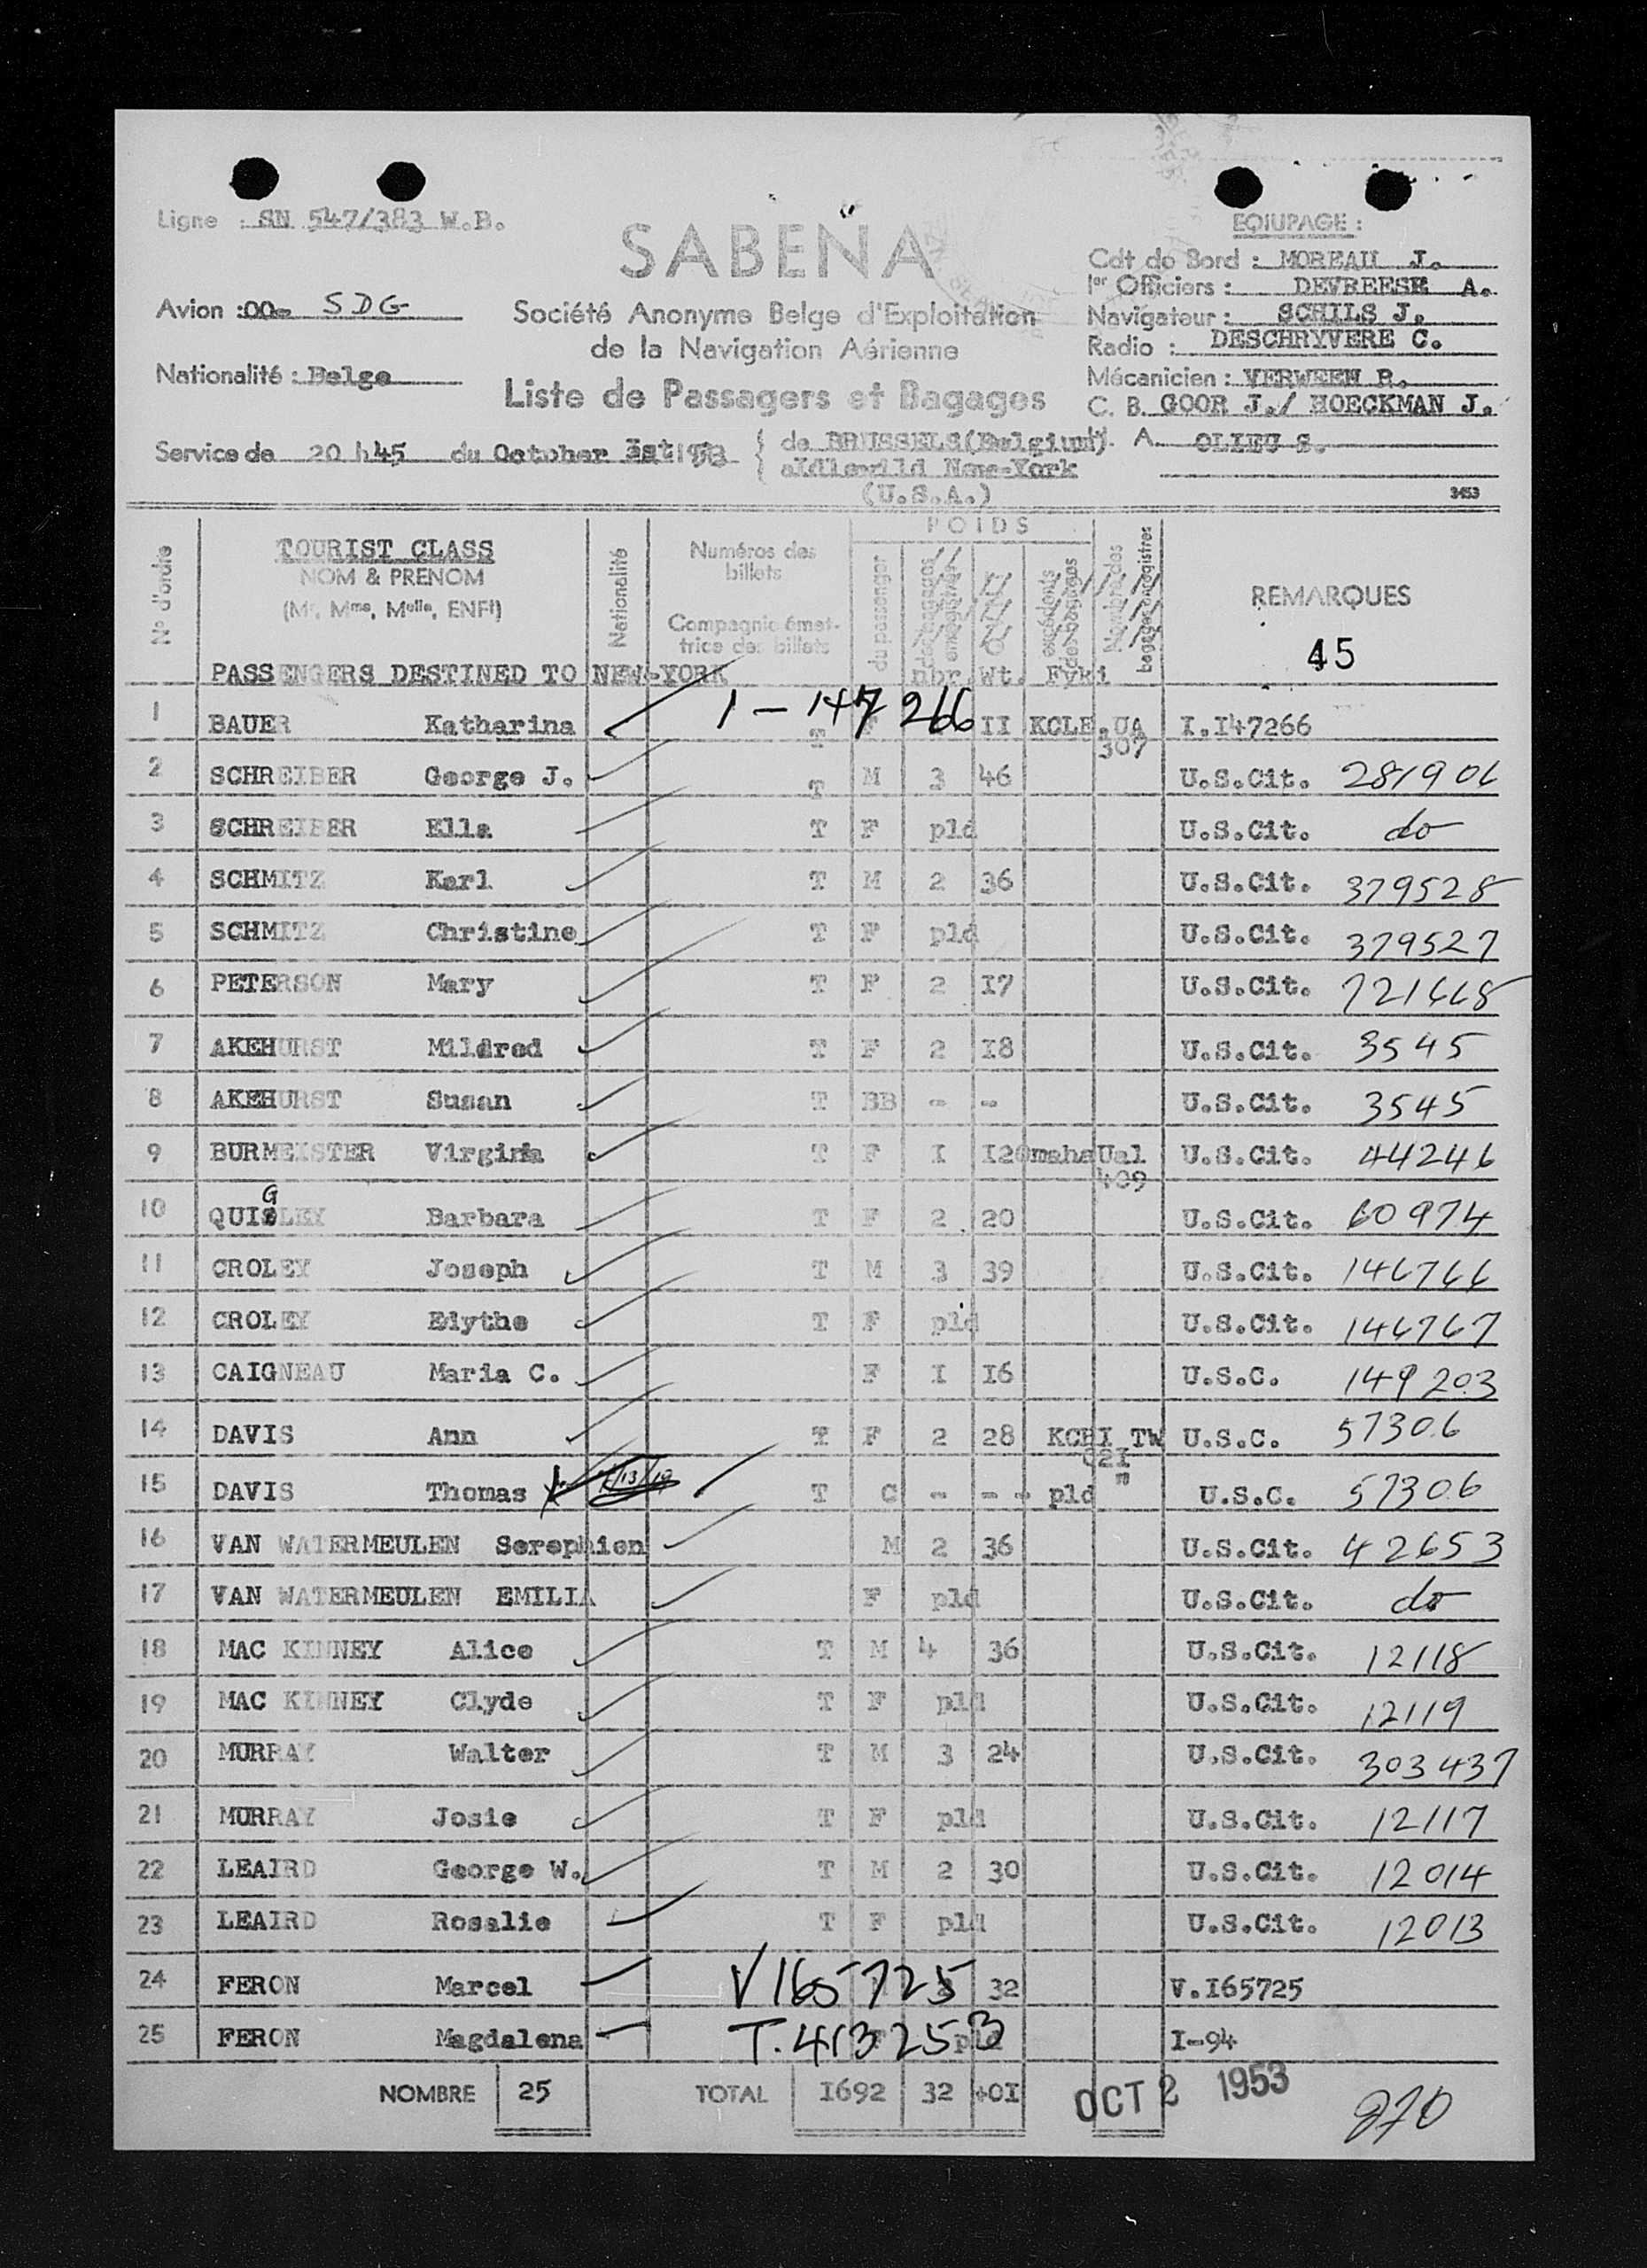 Ligne : SN 547/383 W.B.
SABENA
EQIUPAGE :
Cdt de Bord : MOREAU J.
1er Officiers : DEVREESE A.
Avion :OO- SDG
Société Anonyme Belge d'Exploitation
de la Navigation Aérienne
Navigateur : SCHILS J.
Radio : DESCHRYVERE C.
Nationalité : Belge
Mécanicien : VERWEEN R.
Liste de Passagers et Bagages
C. B. GOOR J./ HOECKMAN J.
Service de 20 h 45 du October 1953
de BRUSSELS(Belgium)
A. OLIEU S.
aIdlewild New-York
(U.S.A.)
3453
POIDS
N° d'ordre
TOURIST CLASS
NOM & PRENOM
(Mr, Mme, Melle, ENFt)
Nationalité
Numéros des
billets
Compagnie émet-
trice des billets
du passager
des bagages
enregistrés
excédents
des bagages
Nombre des
bagages enregistrés
REMARQUES
45
PASSENGERS DESTINED TO NEW-YORK nbr. Wt. Fyki
1 BAUER Katharina 1-147266 T II KCLE.UA I.I47266
307
2 SCHREIBER George J. T M 3 46 U.S.Cit. 281906
3 SCHREIBER Ella T F pld U.S.Cit. do
4 SCHMITZ Karl T M 2 36 U.S.Cit. 379528
5 SCHMITZ Christine T F pld U.S.Cit. 379527
6 PETERSON Mary T F 2 I7 U.S.Cit. 721668
7 AKEHURST Mildred T F 2 I8 U.S.Cit. 3545
8 AKEHURST Susan T BB - - U.S.Cit. 3545
9 BURMEISTER Virginia T F I I2 Omaha Ual U.S.Cit. 44246
409
10 QUIGLEY Barbara T F 2 20 U.S.Cit. 60974
11 CROLEY Joseph T M 3 39 U.S.Cit. 146766
12 CROLEY Edythe T F pld U.S.Cit. 146767
13 CAIGNEAU Maria C. F I I6 U.S.C. 149203
14 DAVIS Ann T F 2 28 KCHI TW U.S.C. 57306
02I
15 DAVIS Thomas T C - - - pld " U.S.C. 57306
16 VAN WATERMEULEN Serephien M 2 36 U.S.Cit. 42653
17 VAN WATERMEULEN EMILIA F pld U.S.Cit. do
18 MAC KINNEY Alice T M 4 36 U.S.Cit. 12118
19 MAC KINNEY Clyde T F pld U.S.Cit. 12119
20 MURRAY Walter T M 3 24 U.S.Cit. 303437
21 MURRAY Josie T F pld U.S.Cit. 12117
22 LEAIRD George W. T M 2 30 U.S.Cit. 12014
23 LEAIRD Rosalie T F pld U.S.Cit. 12013
24 FERON Marcel V165725 32 V.I65725
25 FERON Magdalena T.413253 pld I-94
NOMBRE 25 TOTAL I692 32 40I OCT 2 1953 270